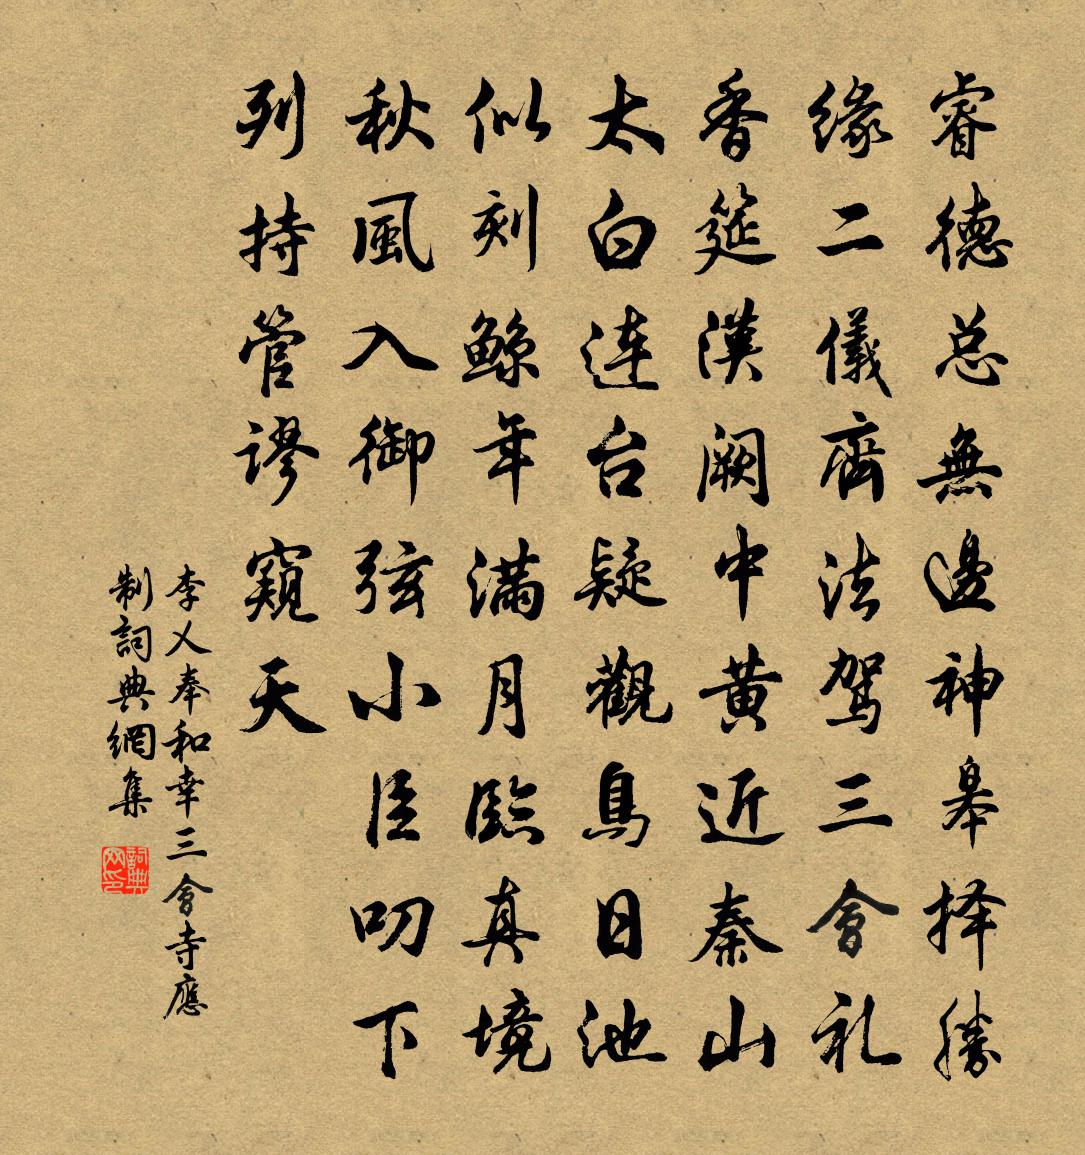 睿德总無邊神皋择勝
缘二儀齊法駕三會礼
香筵漢阙中黄近秦山
太白连台疑觀鳥日池
似刻鲸年滿月臨真境
秋風入御弦小臣叨下
列持管谬窺天
李乂奉和幸三會寺應
制詞典網集
詞典网印